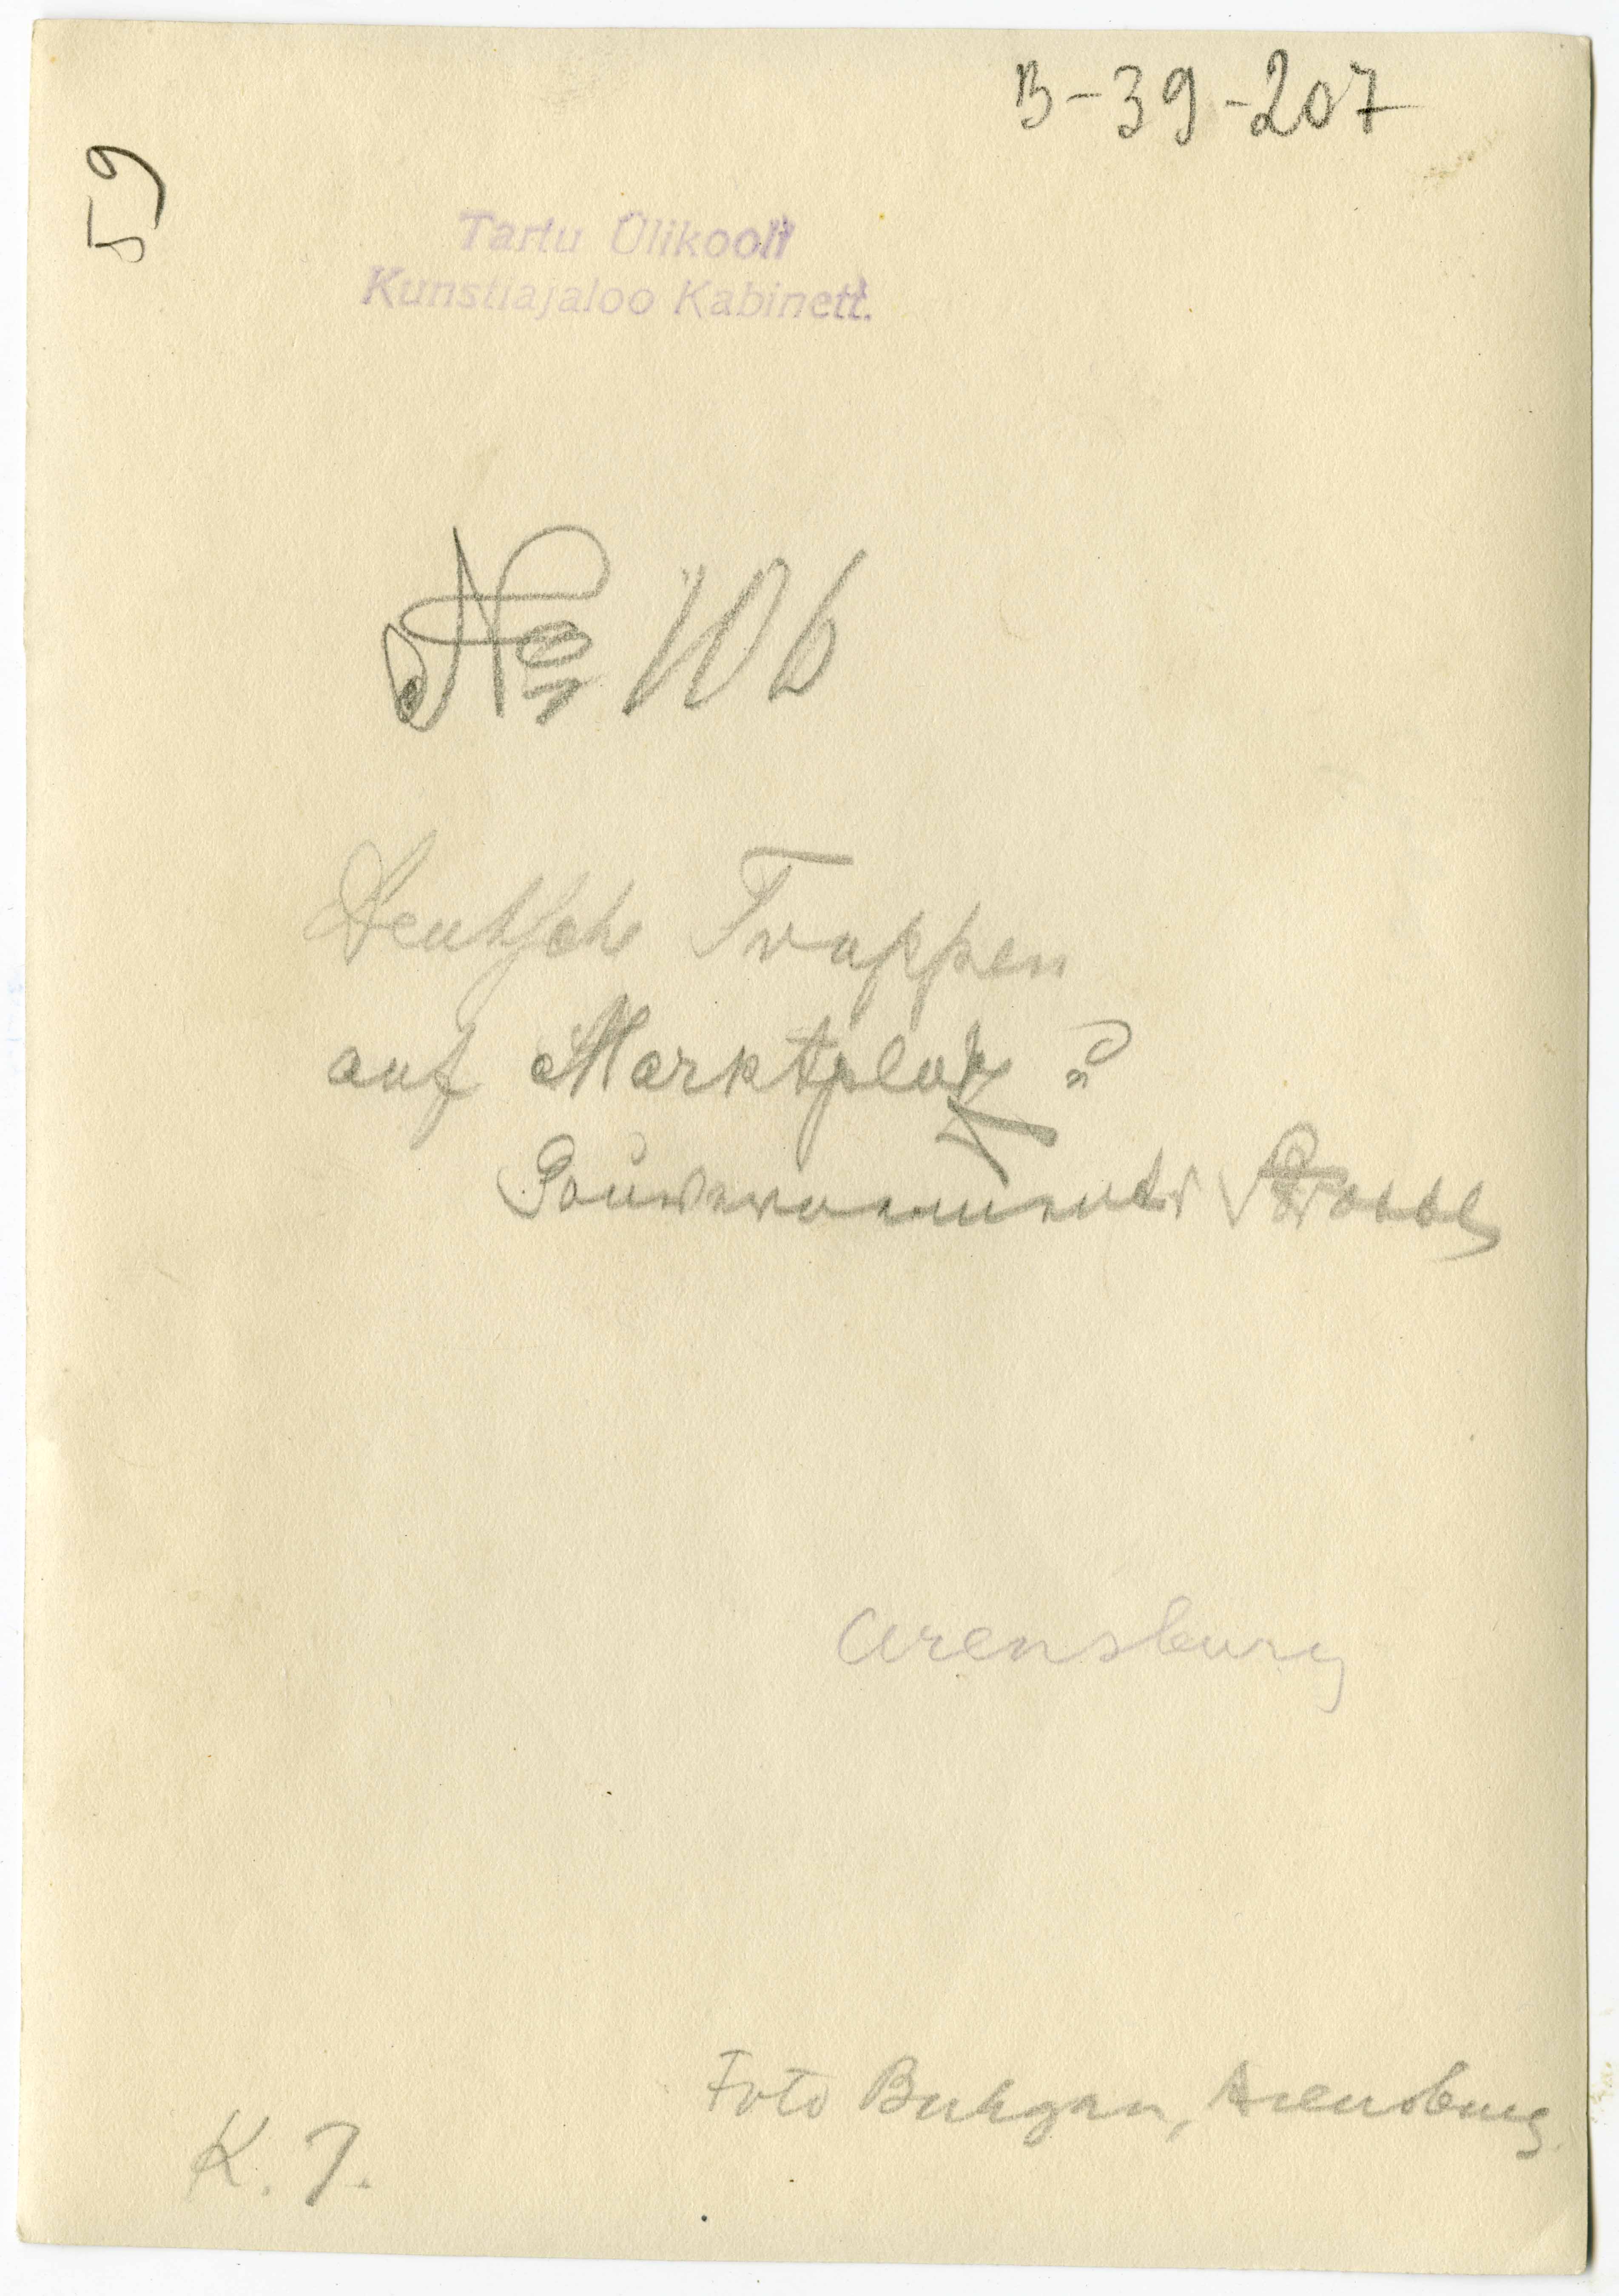 B-39-207
59
Tartu Ülikooli
Kunstiajaloo Kabinett.
No 10 b
Deutsche Truppen
auf Marktplatz ?
Gouvernements
Arensburg
Foto Buhgan, Arensburg.
K. 7.